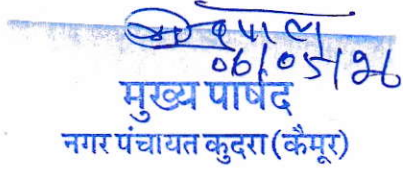 06/05/26
मुख्य पार्षद
नगर पंचायत कुदरा (कैमूर)